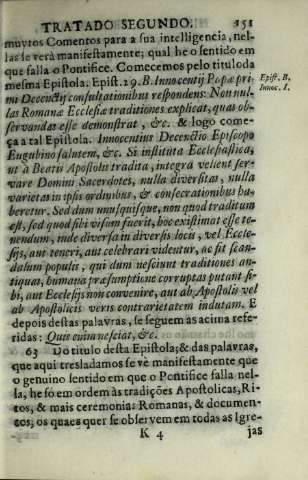 TRATADO SEGUNDO. 151
muytos Comentos para a sua intelligencia, nel-
las se verà manifestamente; qual he o sentido em
que falla o Pontifice. Comecemos pelo titulo da
mesma Epistola. Epist. 29. B. Innocentij Papæ pri-
mi Decentij consultationibus respondens: Non nul-
las Romanæ Ecclesiæ traditiones explicat, quas ob-
servandas esse demonstrat, &c. & logo come-
ça a tal Epistola. Innocentius Decentio Episcopo
Eugubino salutem, &c. Si instituta Ecclesiastica,
ut à Beatis Apostolis tradita, integrà velient ser-
vare Domini Sacerdotes, nulla diversitas, nulla
varietas in ipsis ordinibus, & consecrationibus ha-
beretur. Sed dum unusquisque, non quod traditum
est, sed quod sibi visum fuerit, hoc existimat esse te-
nendum, inde diversa in diversis locis, vel Eccle-
sijs, aut teneri, aut celebrari videntur, ac fit scan-
dalum populis, qui dum nesciunt traditiones an-
tiquas, humana præsumptione corruptas putant si-
bi, aut Ecclesijs non convenire, aut ab Apostolis vel
ab Apostolicis veris contrarietatem indutam. E
depois destas palavras, se seguem as acima refe-
ridas: Quis enim nesciat, &c.
63 Do titulo desta Epistola; & das palavras,
que aqui tresladamos se vè manifestamente que
o genuino sentido em que o Pontifice falla nel-
la, he só em ordem às tradições Apostolicas, Ri-
tos, & mais ceremonias Romanas, & documen-
tos; os quaes quer se observem em todas as Igre-
K 4 jas
Epist. B.
Innoc. I.